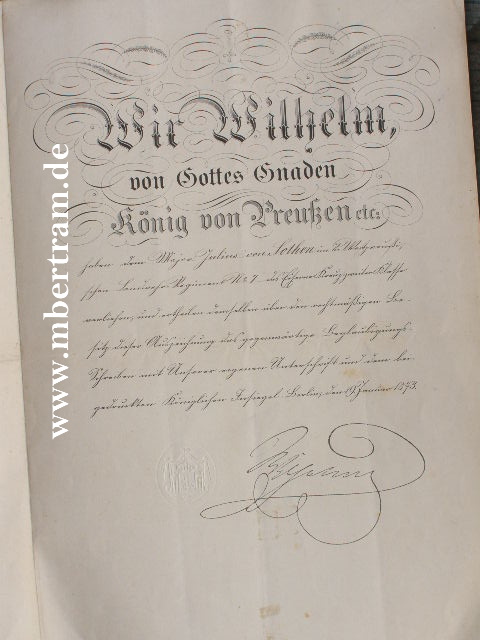 Wir Wilhelm,
von Gottes Gnaden
König von Preußen etc.
haben dem Major Julius von Sothen im 2. Westpreußi-
schen Landwehr-Regiment No 7 das Eiserne Kreuz zweiter Klasse
verliehen, und ertheilen demselben über den rechtmäßigen Be-
sitz dieser Auszeichnung das gegenwärtige Beglaubigungs-
Schreiben mit Unserer eigenen Unterschrift und dem bei-
gedruckten Königlichen Insiegel. Berlin, den 19. Januar 1873.
Wilhelm
www.mbertram.de